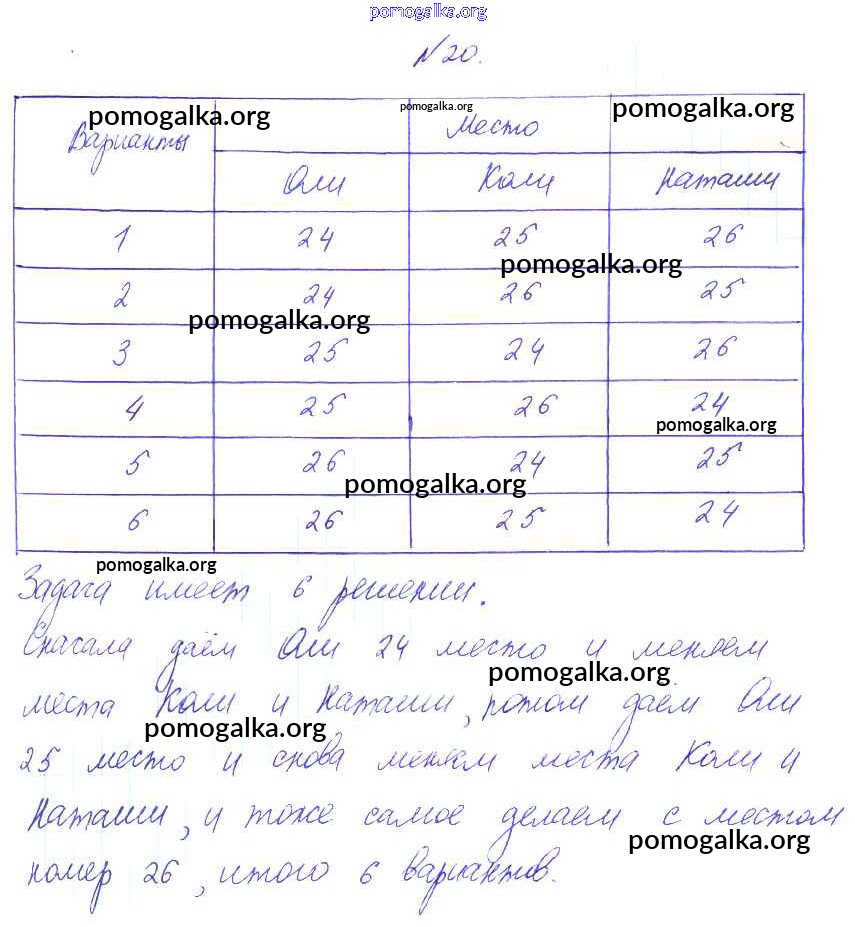 pomogalka.org
№ 20.
pomogalka.org pomogalka.org pomogalka.org
Варианты Место
Оли Коли Наташи
1 24 25 26
pomogalka.org
2 24 26 25
pomogalka.org
3 25 24 26
4 25 26 24
pomogalka.org
5 26 24 25
pomogalka.org
6 26 25 24
pomogalka.org
Задача имеет 6 решении.
Сначала даём Оли 24 место и меняем
pomogalka.org
места Коли и Наташи, потом даём Оли
pomogalka.org
25 место и снова меняем места Коли и
Наташи, и тоже самое делаем с местом
pomogalka.org
номер 26, итого 6 вариантов.